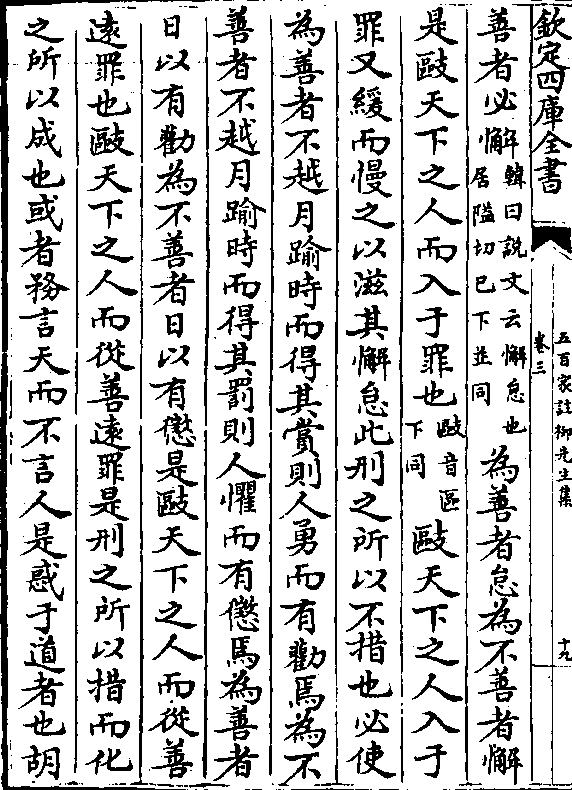 欽定四庫全書
五百家註柳先生集
卷三
十九
善者必懈韓曰説文云懈怠也居隘切已下並同為善者怠為不善者懈
是敺天下之人而入于罪也敺音區下同敺天下之人入于
罪又緩而慢之以滋其懈怠此刑之所以不措也必使
為善者不越月踰時而得其賞則人勇而有勸焉為不
善者不越月踰時而得其罰則人懼而有懲焉為善者
日以有勸為不善者日以有懲是敺天下之人而從善
遠罪也敺天下之人而從善遠罪是刑之所以措而化
之所以成也或者務言天而不言人是惑于道者也胡